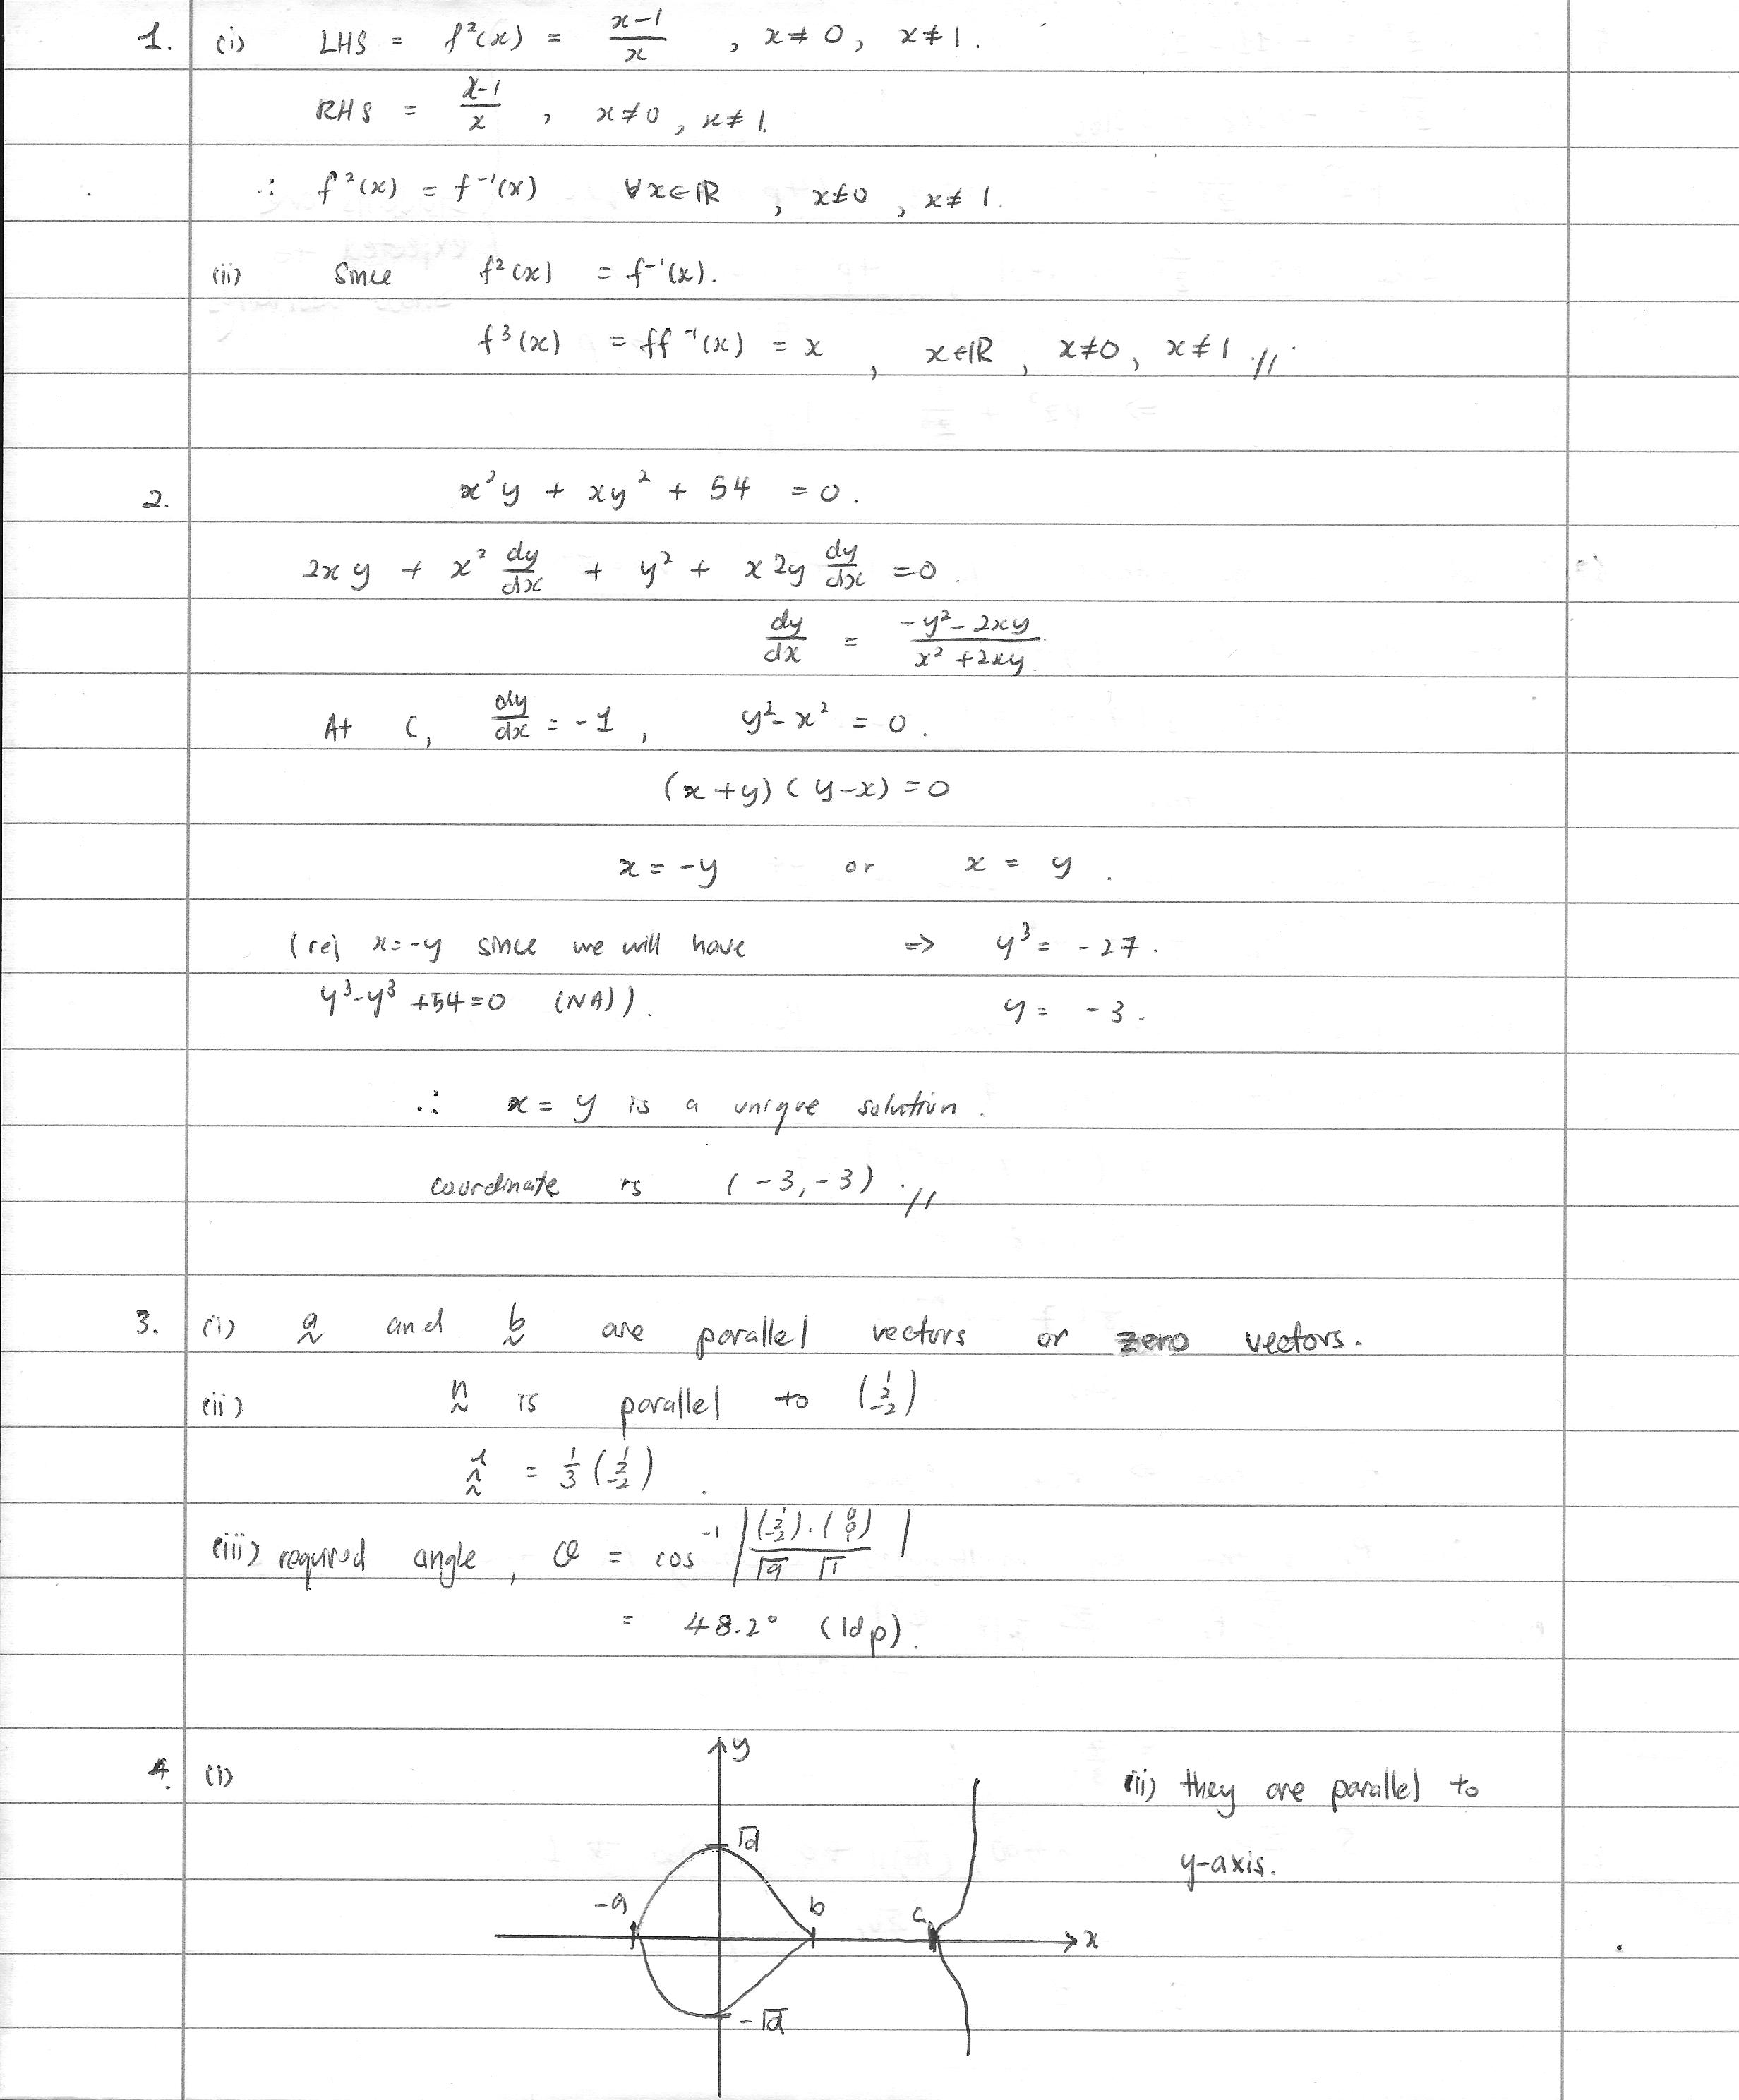 1. (i) LHS = f²(x) = (x-1)/x , x ≠ 0, x ≠ 1.
RHS = (x-1)/x , x ≠ 0, x ≠ 1.
∴ f²(x) = f⁻¹(x) ∀x∈ℝ, x≠0, x≠1.
(ii) Since f²(x) = f⁻¹(x).
f³(x) = ff⁻¹(x) = x, x∈ℝ, x≠0, x≠1 .//.
2. x²y + xy² + 54 = 0.
2xy + x² dy/dx + y² + x2y dy/dx = 0.
dy/dx = (-y²-2xy)/(x²+2xy).
At C, dy/dx = -1, y²-x² = 0.
(x+y)(y-x)=0
x = -y or x = y.
(rej x=-y since we will have ⇒ y³ = -27.
y³-y³+54=0 (NA)). y = -3.
∴ x = y is a unique solution.
coordinate is (-3,-3) .//
3. (i) a and b are parallel vectors or zero vectors.
(ii) n is parallel to (1 2 -2)
n̂ = 1/3 (1 2 -2).
(iii) required angle, θ = cos⁻¹ |(1 2 -2)·(0 0 1) / √9 √1|
= 48.2° (1dp).
4. (i) y (ii) they are parallel to
y-axis.
√d
-a b c x
-√d